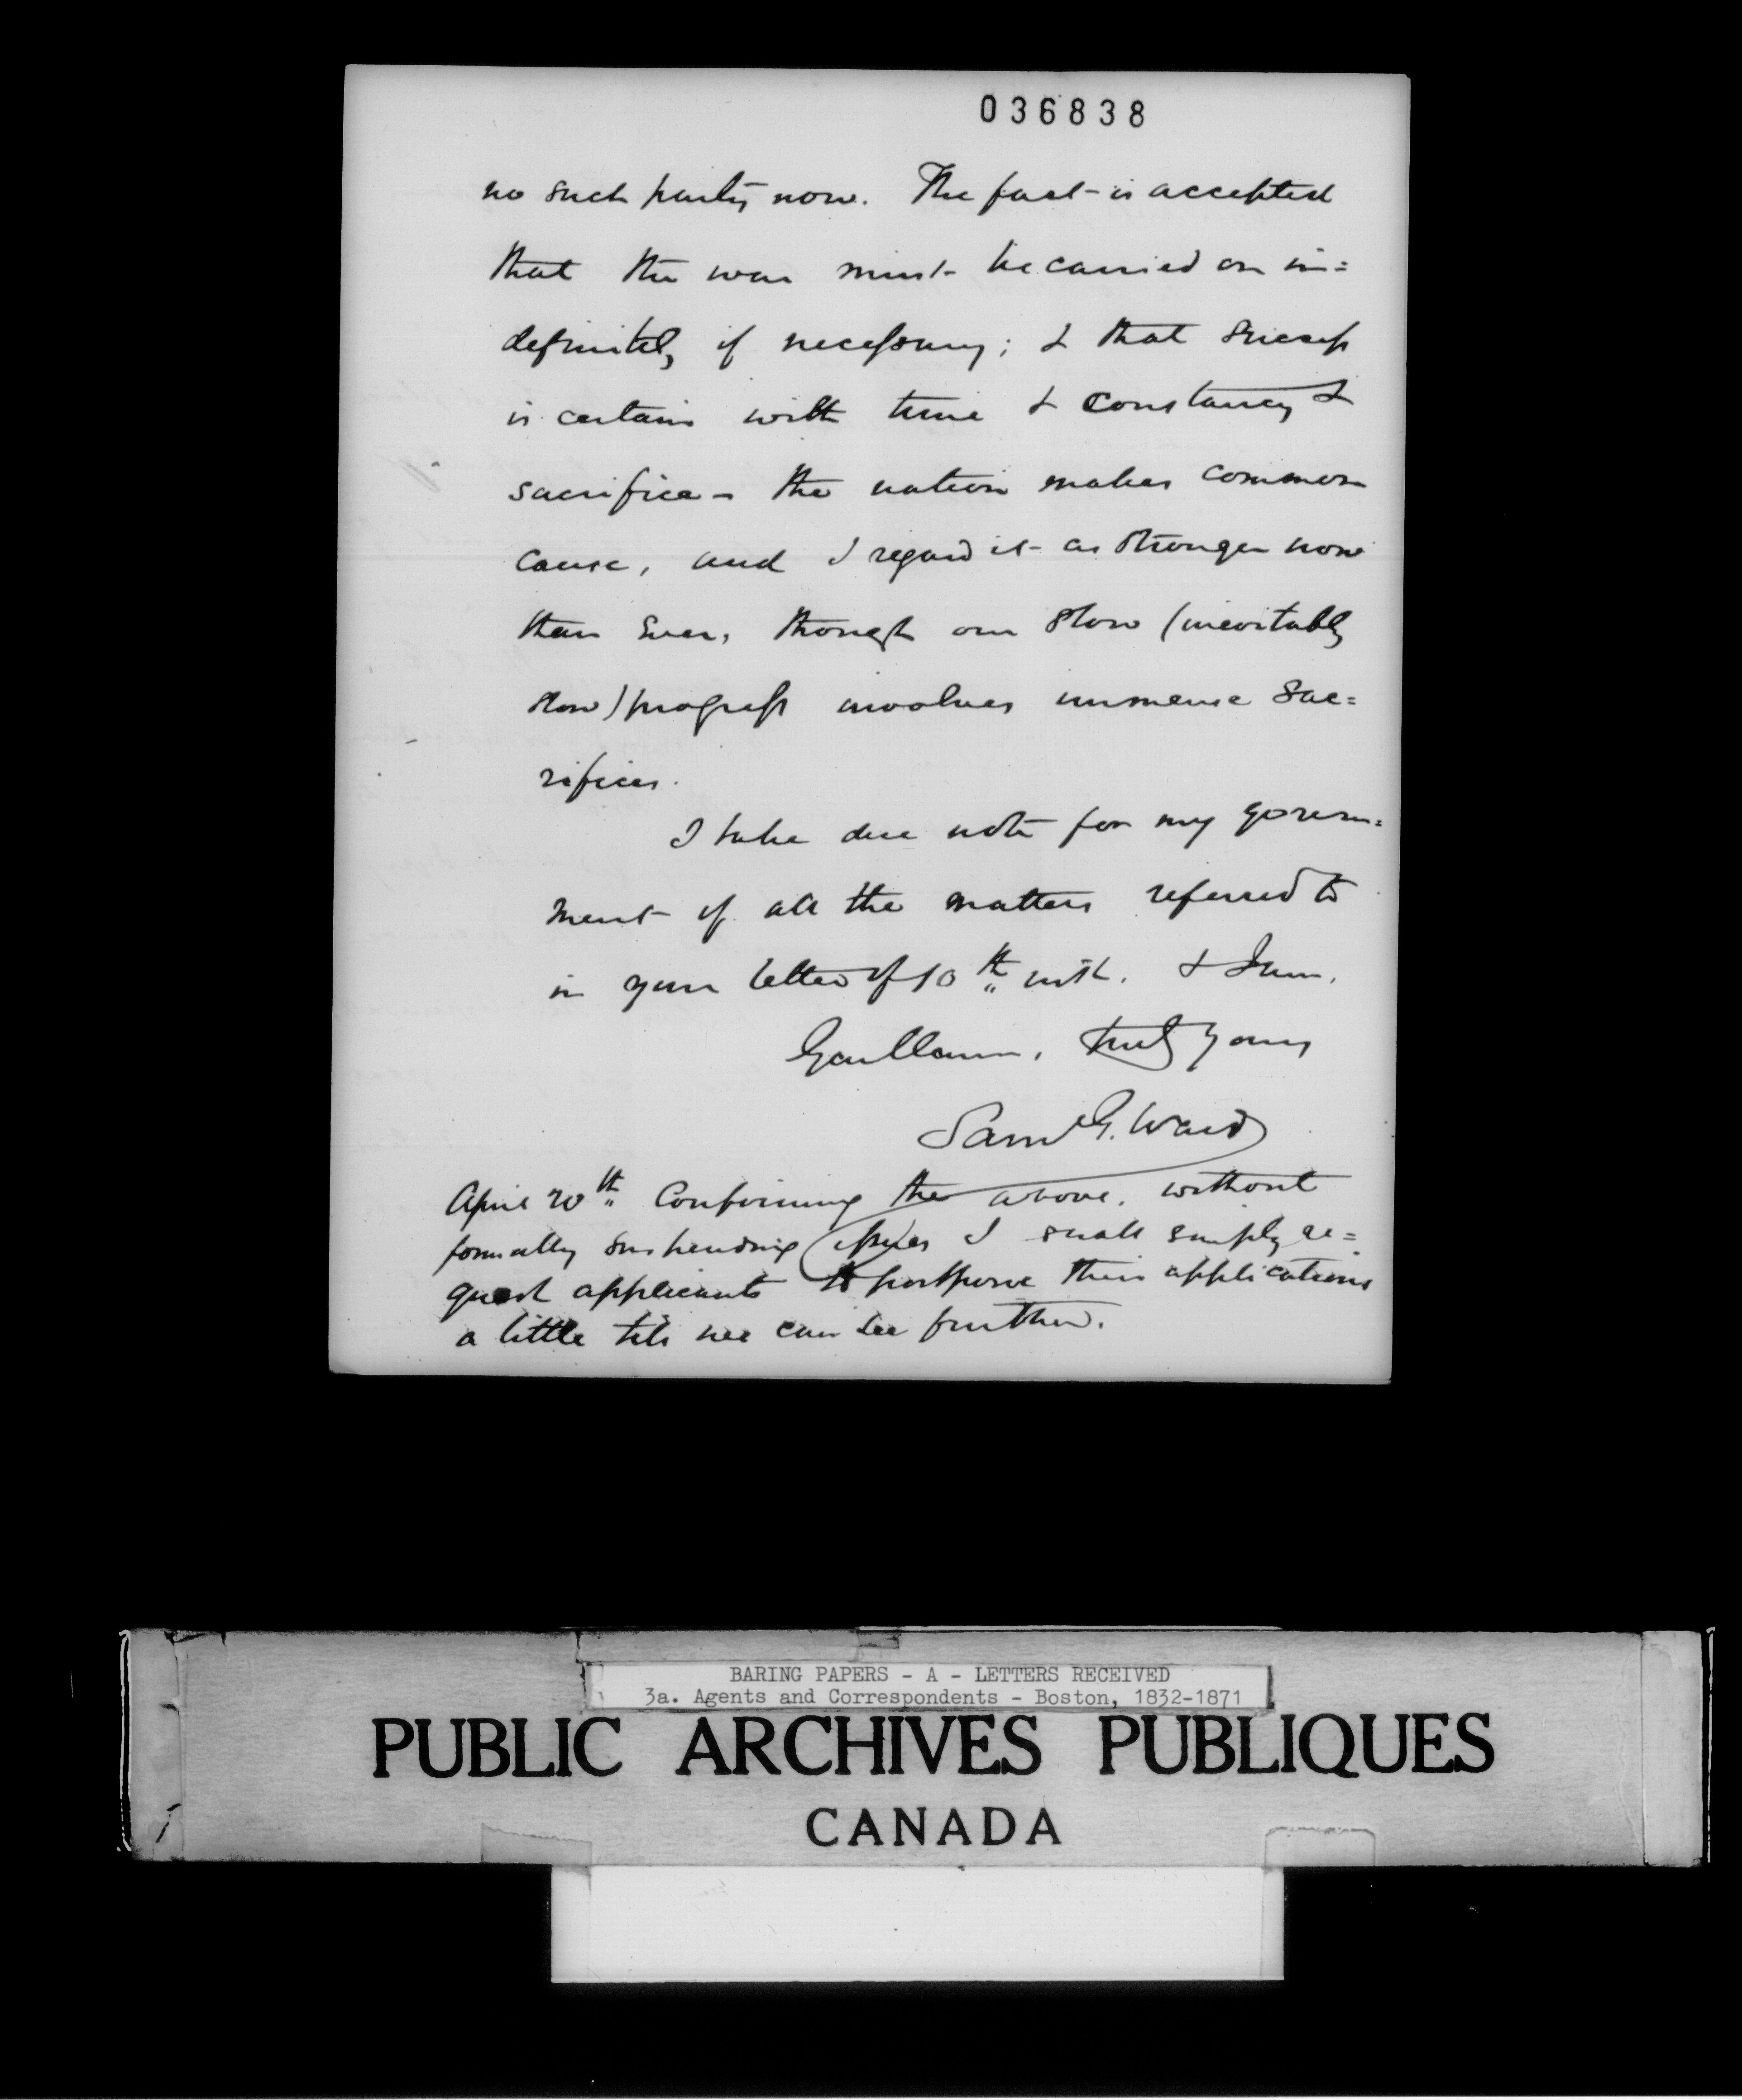 036838
no such party now. The fact is accepted
that the war must be carried on in=
definitely if necessary; & that success
is certain with time & constancy &
sacrifice - the nation makes common
cause, and I regard it as stronger now
than ever, though our slow (inevitably
slow) progress involves immense sac=
rifices.
I take due note for my govern=
ment of all the matters referred to
in your letter of 10th ult. & I am,
Gentlemen, truly yours
Saml G. Ward
April 20th Confirming the above. without
formally suspending issues I shall simply re=
quest applicants to postpone their applications
a little till we can see further.
BARING PAPERS - A - LETTERS RECEIVED
3a. Agents and Correspondents - Boston, 1832-1871
PUBLIC ARCHIVES PUBLIQUES
CANADA